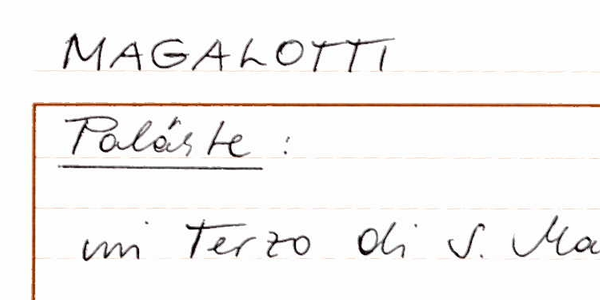 MAGALOTTI
Paläste :
im Terzo di S. Ma